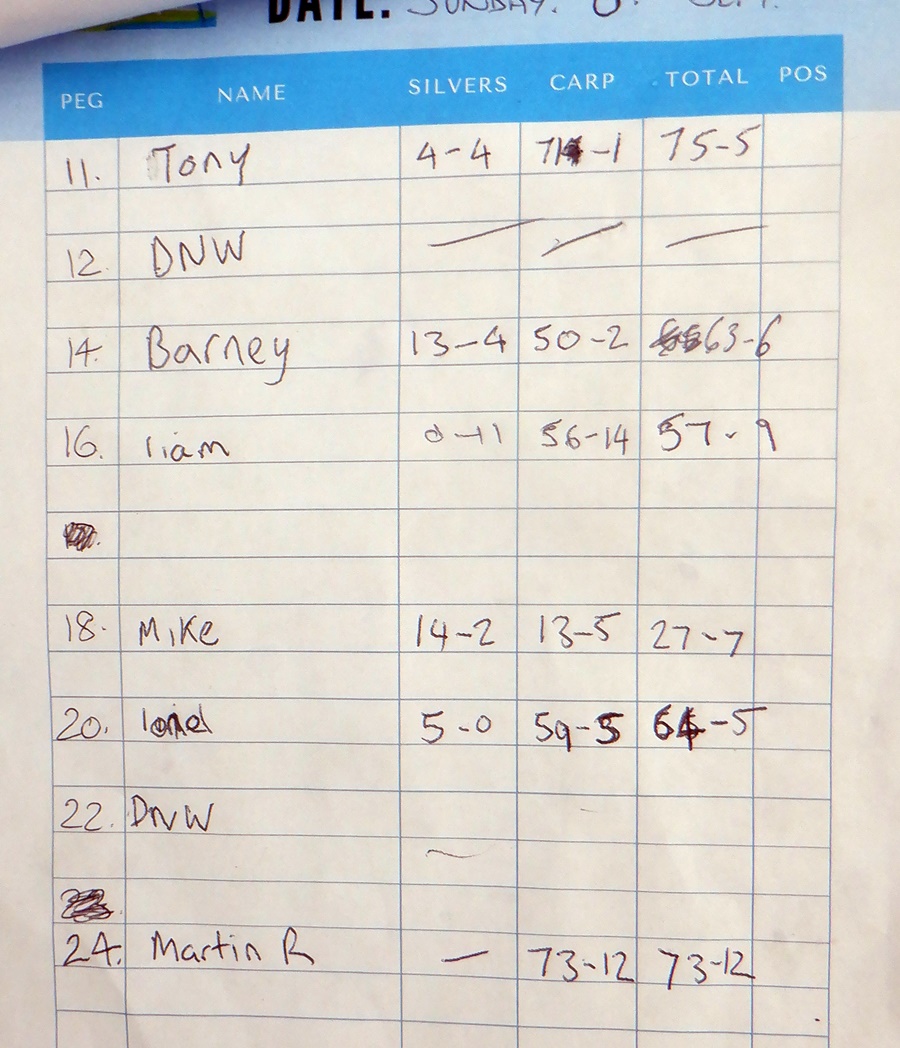 DATE: SUNDAY. 8. SEPT.
PEG NAME SILVERS CARP TOTAL POS
11. Tony 4-4 71-1 75-5
12. DNW
14. Barney 13-4 50-2 63-6
16. liam 0-11 56-14 57-9
18. Mike 14-2 13-5 27-7
20. 5-0 59-5 64-5
22. DNW
24. Martin R — 73-12 73-12